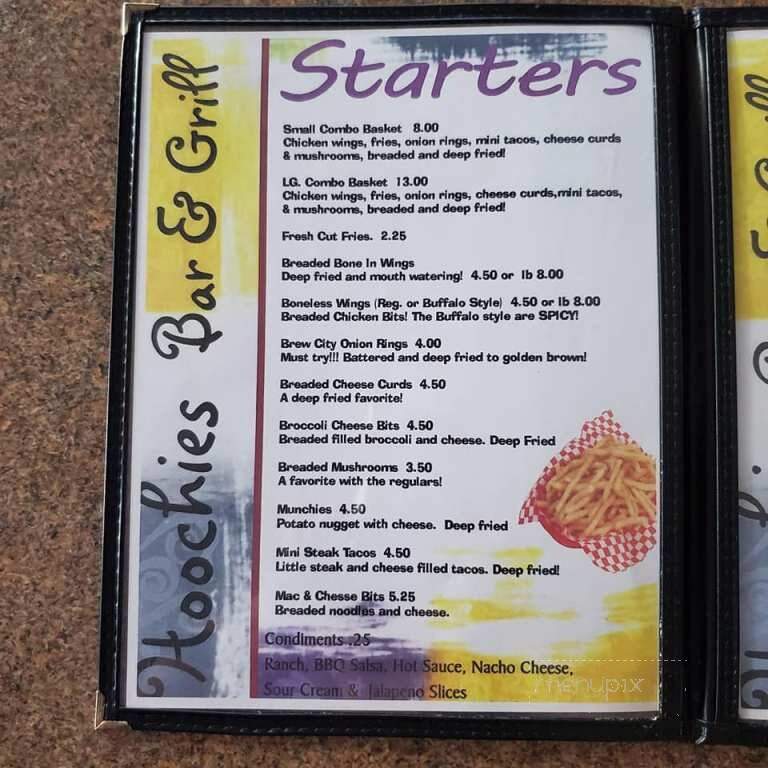 Hoochies Bar & Grill
Starters
Small Combo Basket 8.00
Chicken wings, fries, onion rings, mini tacos, cheese curds
& mushrooms, breaded and deep fried!
LG. Combo Basket 13.00
Chicken wings, fries, onion rings, cheese curds,mini tacos,
& mushrooms, breaded and deep fried!
Fresh Cut Fries. 2.25
Breaded Bone In Wings
Deep fried and mouth watering! 4.50 or lb 8.00
Boneless Wings (Reg. or Buffalo Style) 4.50 or lb 8.00
Breaded Chicken Bits! The Buffalo style are SPICY!
Brew City Onion Rings 4.00
Must try!!! Battered and deep fried to golden brown!
Breaded Cheese Curds 4.50
A deep fried favorite!
Broccoli Cheese Bits 4.50
Breaded filled broccoli and cheese. Deep Fried
Breaded Mushrooms 3.50
A favorite with the regulars!
Munchies 4.50
Potato nugget with cheese. Deep fried
Mini Steak Tacos 4.50
Little steak and cheese filled tacos. Deep fried!
Mac & Chesse Bits 5.25
Breaded noodles and cheese.
Condiments .25
Ranch, BBQ Salsa, Hot Sauce, Nacho Cheese,
Sour Cream & Jalapeno Slices
menupix